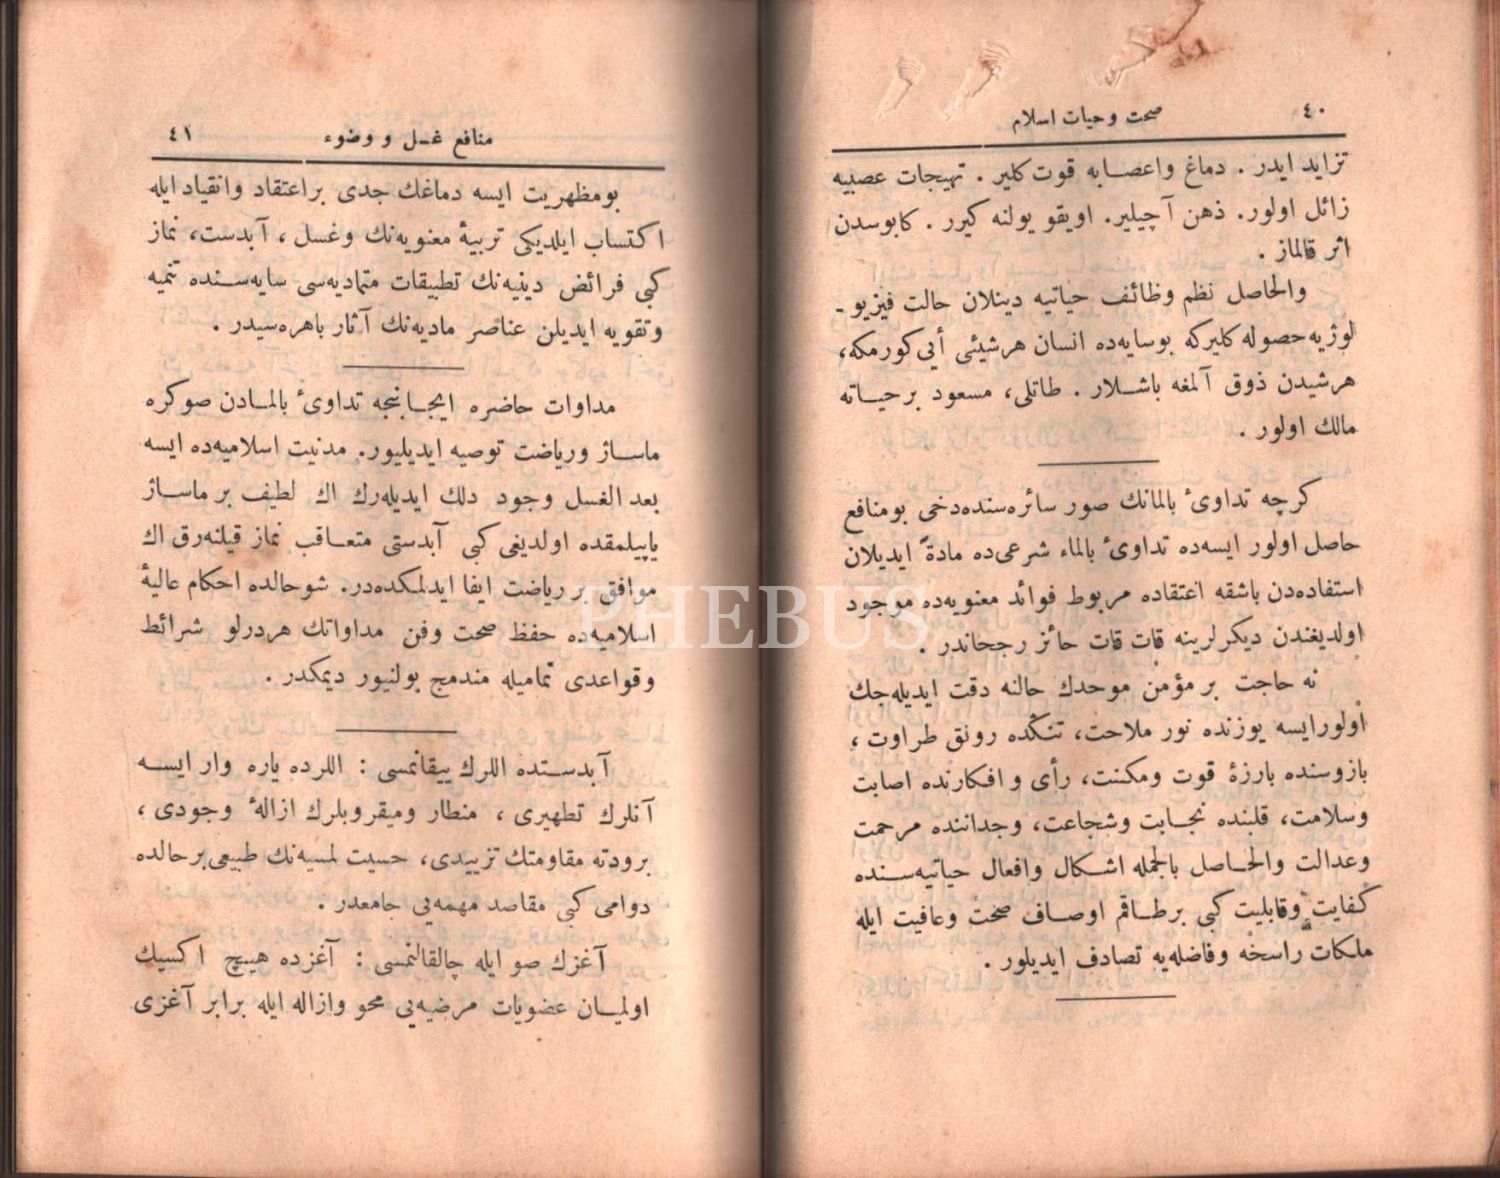 ٤٠ صحت و حیات اسلام
تزاید ایدر . دماغ واعصابه قوت کلیر . تهیجات عصبیه
زائل اولور. ذهن آچیلیر. اویقو یولنه کیرر . کابوسدن
اثر قالماز .
والحاصل نظم وظائف حیاتیه دینلان حالت فیزیو ـ
لوژیه حصوله کلیرکه بوسایه‌ده انسان هرشیئی أیی کورمکه،
هرشیدن ذوق آلمغه باشلار . طاتلی، مسعود برحیاته
مالك اولور .
کرچه تداوئ بالمانك صور سائره‌سنده‌دخی بومنافع
حاصل اولور ایسه‌ده تداوئ بالماء شرعی‌ده مادةً ایدیلان
استفاده‌دن باشقه اعتقاده مربوط فوائد معنویه‌ده موجود
اولدیغندن دیکرلرینه قات قات حائز رجحاندر .
نه حاجت بر مؤمن موحدك حالنه دقت ایدیله‌جك
اولورایسه یوزنده نور ملاحت، تنکده رونق طراوت ،
بازوسنده بارزهٔ قوت ومکنت، رأی و افکارنده اصابت
وسلامت، قلبنده نجابت وشجاعت، وجداننده مرحمت
وعدالت والحاصل بالجمله اشکال وافعال حیاتیه‌سنده
کفایت وقابلیت کبی برطاقم اوصاف صحت وعافیت ایله
ملکات راسخه وفاضله‌یه تصادف ایدیلور .
منافع غسل و وضوء ٤١
بومظهریت ایسه دماغك جدی براعتقاد وانقیاد ایله
اکتساب ایلدیکی تربیهٔ معنویه‌نك وغسل ، آبدست، نماز
کبی فرائض دینیه‌نك تطبیقات متمادیه‌سی سایه‌سنده تنمیه
وتقویه ایدیلن عناصر مادیه‌نك آثار باهره‌سیدر .
مداوات حاضره ایجابنجه تداوئ بالمادن صوکره
ماساژ وریاضت توصیه ایدیلیور. مدنیت اسلامیه‌ده ایسه
بعد الغسل وجود دلك ایدیله‌رك اك لطیف بر ماساژ
یاپیلمقده اولدیغی کبی آبدستی متعاقب نماز قیلنه‌رق اك
موافق بر ریاضت ایفا ایدلمکده‌در. شوحالده احکام عالیهٔ
اسلامیه‌ده حفظ صحت وفن مداواتك هردرلو شرائط
وقواعدی تمامیله مندمج بولنیور دیمکدر .
آبدستده اللرك ییقانمسی : اللرده یاره وار ایسه
آنلرك تطهیری ، منطار ومیقروبلرك ازالهٔ وجودی ،
برودته مقاومتك تزییدی، حسیت لمسیه‌نك طبیعی برحالده
دوامی کبی مقاصد مهمه‌یی جامعدر .
آغزك صو ایله چالقالنمسی : آغزده هیچ اکسیك
اولمیان عضویات مرضیه‌یی محو وازاله ایله برابر آغزی
PHEBUS